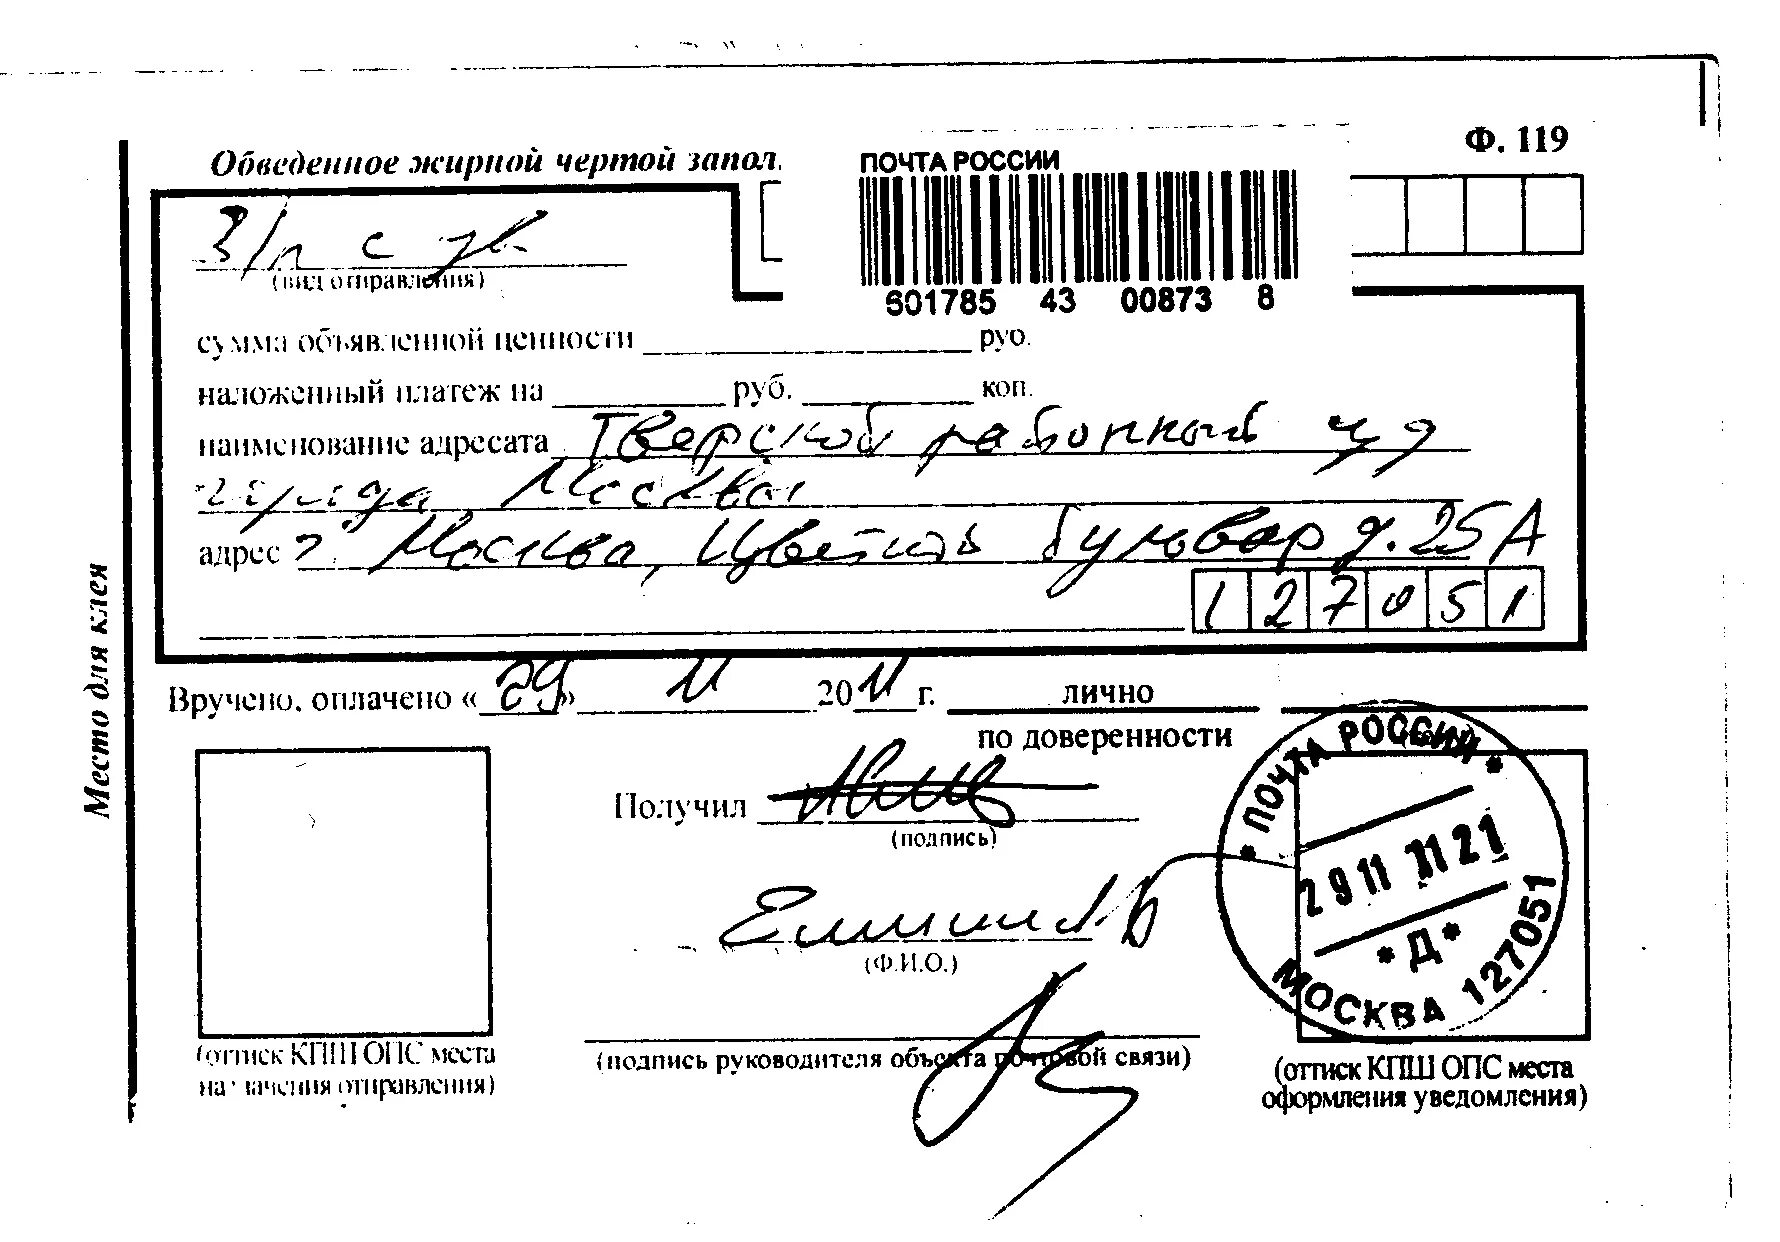 Ф. 119
Обведенное жирной чертой запол.
ПОЧТА РОССИИ
601785 43 00873 8
З/п с ув.
(вид отправления)
сумма объявленной ценности руб.
наложенный платеж на руб. коп.
наименование адресата Тверской районный суд
города Москвы
адрес г. Москва, Цветной бульвар д. 25А
127051
Вручено, оплачено «29» 11 2011 г. лично
по доверенности
Получил
(подпись)
(Ф.И.О.)
(подпись руководителя объекта почтовой связи)
(оттиск КПШ ОПС места
назначения отправления)
* ПОЧТА РОССИИ *
29 11 11 21
* Д *
МОСКВА 127051
(оттиск КПШ ОПС места
оформления уведомления)
Место для клея